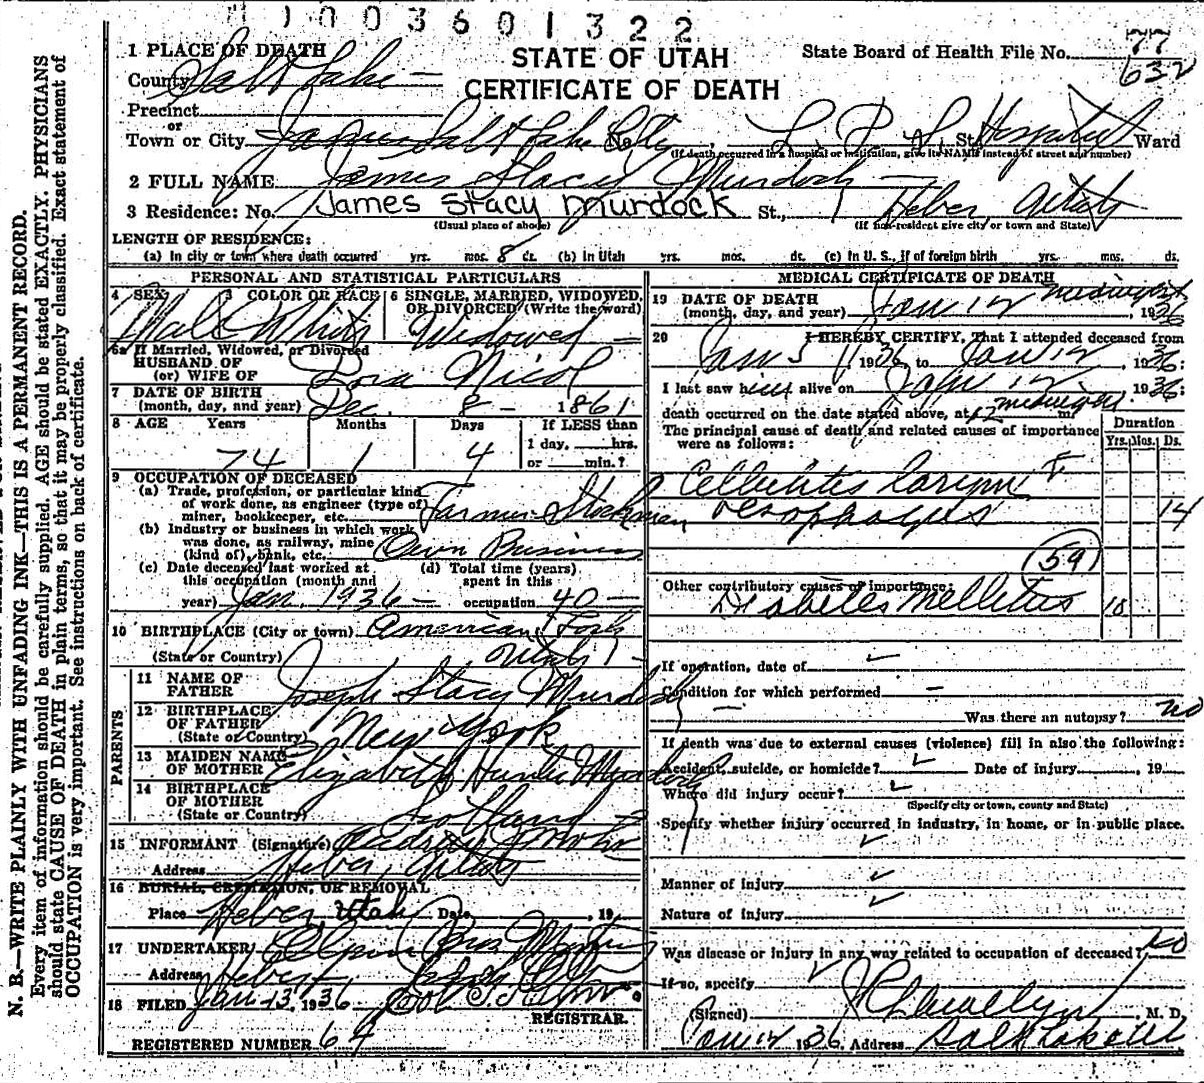 003601322
1 PLACE OF DEATH
STATE OF UTAH
CERTIFICATE OF DEATH
State Board of Health File No. 77
632
County Salt Lake
Precinct
or
Town or City Salt Lake City No. L. D. S. St. Hospital Ward
(If death occurred in a hospital or institution, give its NAME instead of street and number)
2 FULL NAME James Stacy Murdock
3 Residence: No. James Stacy Murdock St., Heber, Utah
(Usual place of abode) (If non-resident give city or town and State)
LENGTH OF RESIDENCE:
(a) In city or town where death occurred yrs. mos. 8 ds. (b) In Utah yrs. mos. ds. (c) In U. S., if of foreign birth yrs. mos. ds.
PERSONAL AND STATISTICAL PARTICULARS
4 SEX 5 COLOR OR RACE 6 SINGLE, MARRIED, WIDOWED, OR DIVORCED (Write the word)
Male White Widowed
6a If Married, Widowed, or Divorced
HUSBAND OF
(or) WIFE OF Nicol
7 DATE OF BIRTH
(month, day, and year) Dec. 8 - 1861
8 AGE Years Months Days If LESS than
1 day, hrs.
74 1 4 or min.?
9 OCCUPATION OF DECEASED
(a) Trade, profession, or particular kind
of work done, as engineer (type of)
miner, bookkeeper, etc. Farmer Stockman
(b) Industry or business in which work
was done, as railway, mine
(kind of), bank, etc. Own Business
(c) Date deceased last worked at
this occupation (month and
year) Jan. 1936
(d) Total time (years)
spent in this
occupation 40
10 BIRTHPLACE (City or town) American Fork
(State or Country) Utah
PARENTS
11 NAME OF
FATHER Joseph Stacy Murdock
12 BIRTHPLACE
OF FATHER
(State or Country) New York
13 MAIDEN NAME
OF MOTHER Elizabeth Hunter Murdock
14 BIRTHPLACE
OF MOTHER
(State or Country) Scotland
15 INFORMANT (Signature)
Address Heber, Utah
16 BURIAL, CREMATION, OR REMOVAL
Place Heber, Utah Date , 19
17 UNDERTAKER
Address Heber
18 FILED Jan 13, 1936
REGISTRAR.
REGISTERED NUMBER 64
MEDICAL CERTIFICATE OF DEATH
19 DATE OF DEATH
(month, day, and year) Jan 12 midnight, 1936
20 I HEREBY CERTIFY, That I attended deceased from
Jan 5, 1936 to Jan 12, 1936:
I last saw him alive on Jan 12, 1936:
death occurred on the date stated above, at 12 midnight m.
The principal cause of death and related causes of importance
were as follows:
Duration
Yrs. Mos. Ds.
Cellulites Larynx &
oesophagus 14
59
Other contributory causes of importance:
Diabetes Mellitus 10
If operation, date of
Condition for which performed
Was there an autopsy? no
If death was due to external causes (violence) fill in also the following:
Accident, suicide, or homicide? Date of injury , 19
Where did injury occur?
(Specify city or town, county and State)
Specify whether injury occurred in industry, in home, or in public place.
Manner of injury
Nature of injury
Was disease or injury in any way related to occupation of deceased? no
If so, specify
(Signed) , M. D.
Jan 12 1936, Address Salt Lake
N. B.—WRITE PLAINLY WITH UNFADING INK—THIS IS A PERMANENT RECORD.
Every item of information should be carefully supplied. AGE should be stated EXACTLY. PHYSICIANS
should state CAUSE OF DEATH in plain terms, so that it may be properly classified. Exact statement of
OCCUPATION is very important. See instructions on back of certificate.